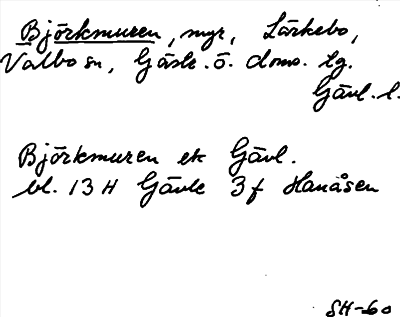 Björkmuren, myr, Lärkebo,
Valbo sn, Gästr. ö. doms. tg.
Gävl. l.
Björkmuren ek Gävl.
bl. 13 H Gävle 3 f Hanåsen
SH-60